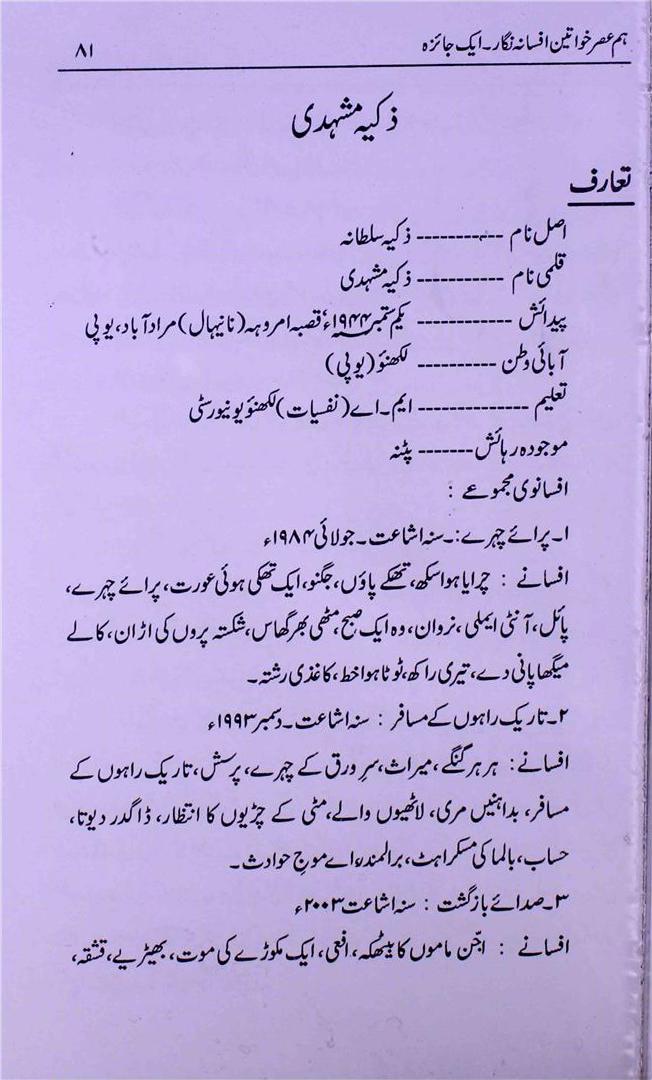 ہم عصر خواتین افسانہ نگار۔ ایک جائزہ ۸۱
ذکیہ مشہدی
تعارف
اصل نام ----------- ذکیہ سلطانہ
قلمی نام ----------- ذکیہ مشہدی
پیدائش ------------ یکم ستمبر ۱۹۴۴ء، قصبہ امروہہ (نانیہال) مرادآباد، یوپی
آبائی وطن ---------- لکھنؤ (یوپی)
تعلیم -------------- ایم۔اے (نفسیات) لکھنؤ یونیورسٹی
موجودہ رہائش ------- پٹنہ
افسانوی مجموعے :
۱۔ پرائے چہرے :۔ سنہ اشاعت۔ جولائی ۱۹۸۴ء
افسانے : چرایا ہوا سکھ، تھکے پاؤں، جگنو، ایک تھکی ہوئی عورت، پرائے چہرے،
پائل، آنٹی ایملی، نروان، وہ ایک صبح، مٹھی بھر گھاس، شکستہ پروں کی اڑان، کالے
میگھا پانی دے، تیری راکھ، ٹوٹا ہوا خط، کاغذی رشتہ۔
۲۔ تاریک راہوں کے مسافر : سنہ اشاعت۔ دسمبر ۱۹۹۳ء
افسانے : ہر ہر گنگے، میراث، سرِ ورق کے چہرے، پرسش، تاریک راہوں کے
مسافر، بدا نہیں مری، لاٹھیوں والے، مٹی کے چڑیوں کا انتظار، ڈاگدر دیوتا،
حساب، بالما کی مسکراہٹ، اے موجِ حوادث۔
۳۔ صدائے بازگشت : سنہ اشاعت ۲۰۰۳ء
افسانے : اجّن ماموں کا بیٹھکہ، افعی، ایک مکوڑے کی موت، بھیڑیے، قشقہ،